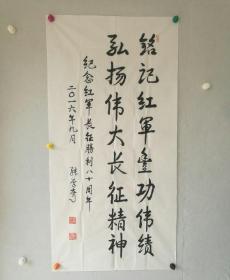 銘记红軍豐功伟績
弘扬伟大长征精神
纪念红军長征勝利八十周年
二〇一六年九月